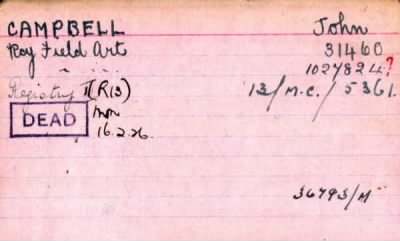 CAMPBELL John
Roy Field Art 31460
" " " 1027824?
Registry II(R13) 13/M.C./5361.
DEAD
16.2.26.
36793/M